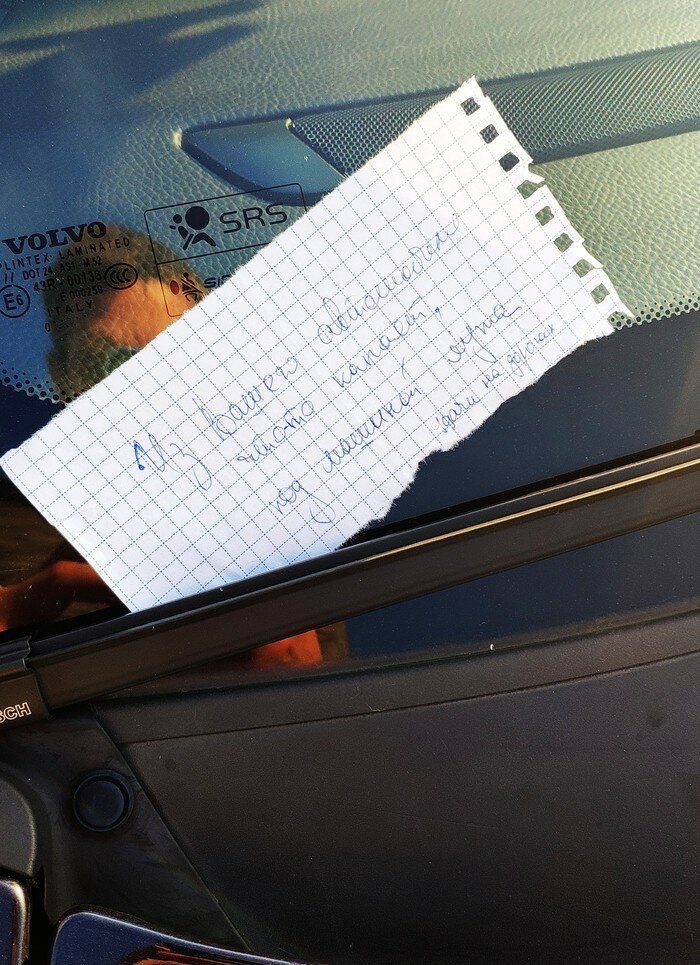 VOLVO
SPLINTEX LAMINATED
// DOT24 AS1 M52
E6 43R-00133 CCC
E 000259
ITALY
SRS
Из Вашего автомобиля
что-то капает,
под машиной лужа
дачи на дорогах
SCH